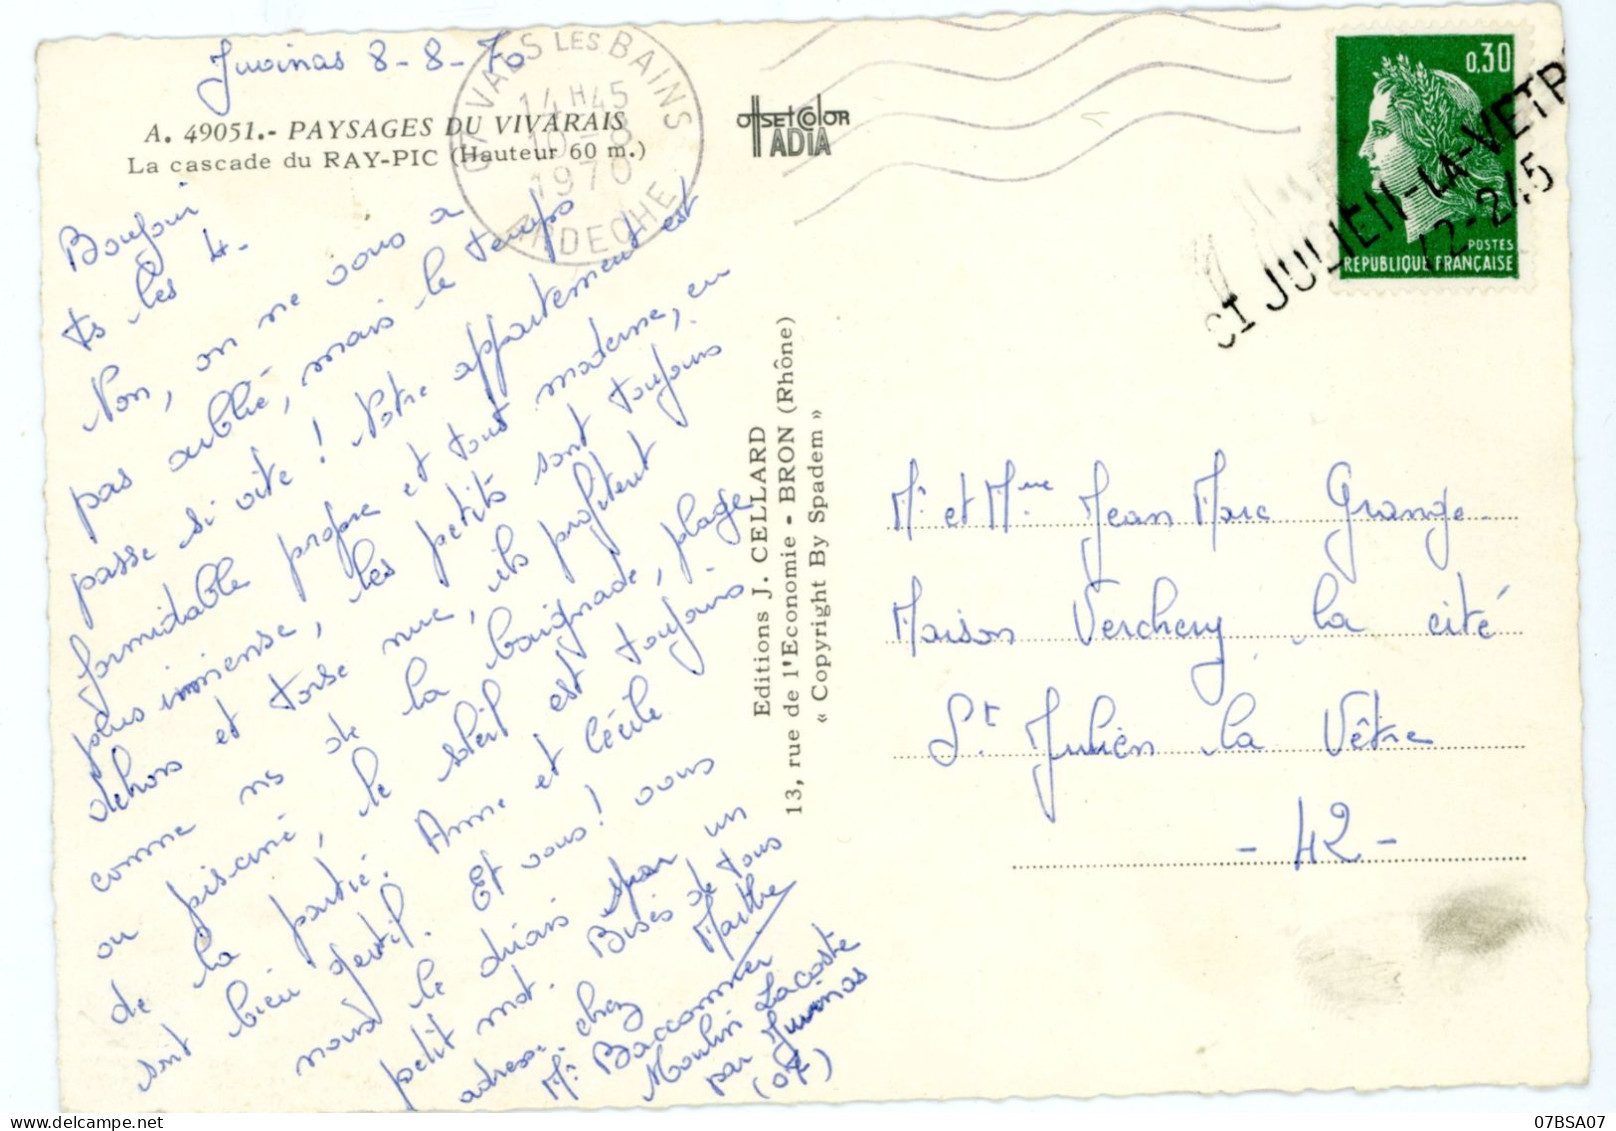 Juvinas 8-8-70
A. 49051.- PAYSAGES DU VIVARAIS
La cascade du RAY-PIC (Hauteur 60 m.)
VALS LES BAINS
14 H 45
10-8
1970
ARDECHE
OffSETCOlOR
IADIA
0,30
POSTES
REPUBLIQUE FRANÇAISE
ST JULIEN-LA-VETR
12-245
Bonjour
ts les 4.
Non, on ne vous a
pas oublié, mais le temps
passe si vite ! Notre appartement est
formidable propre et tout moderne, en
plus immense, les petits sont toujours
dehors et torse nue, ils profitent
comme ns de la baignade, plage
ou piscine, le soleil est toujours
de la partie. Anne et Cécile
sont bien gentil. Et vous ! vous
nous le dirais par un
petit mot. Bises de tous
Marthe
adresse : chez
Mr Baccommer
Moulin Lacoste
par Juvinas
(07)
Editions J. CELLARD
13, rue de l'Economie - BRON (Rhône)
« Copyright By Spadem »
Mr et Mme Jean Marc Grange
Maison Verchery, la cité
St Julien la Vêtre
- 42 -
07BSA07